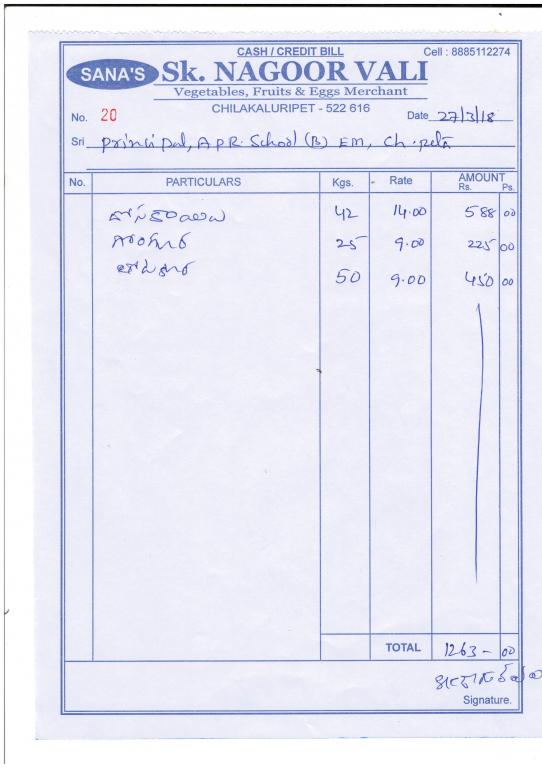 CASH / CREDIT BILL
Cell : 8885112274
SANA'S Sk. NAGOOR VALI
Vegetables, Fruits & Eggs Merchant
CHILAKALURIPET - 522 616
No. 20
Date 27/3/18
Sri Principal, A P R. School (B) EM, Ch. peta
No. PARTICULARS Kgs. Rate AMOUNT
Rs. Ps.
దోసకాయలు 42 14.00 588 00
25 9.00 225 00
50 9.00 450 00
TOTAL 1263 - 00
Signature.